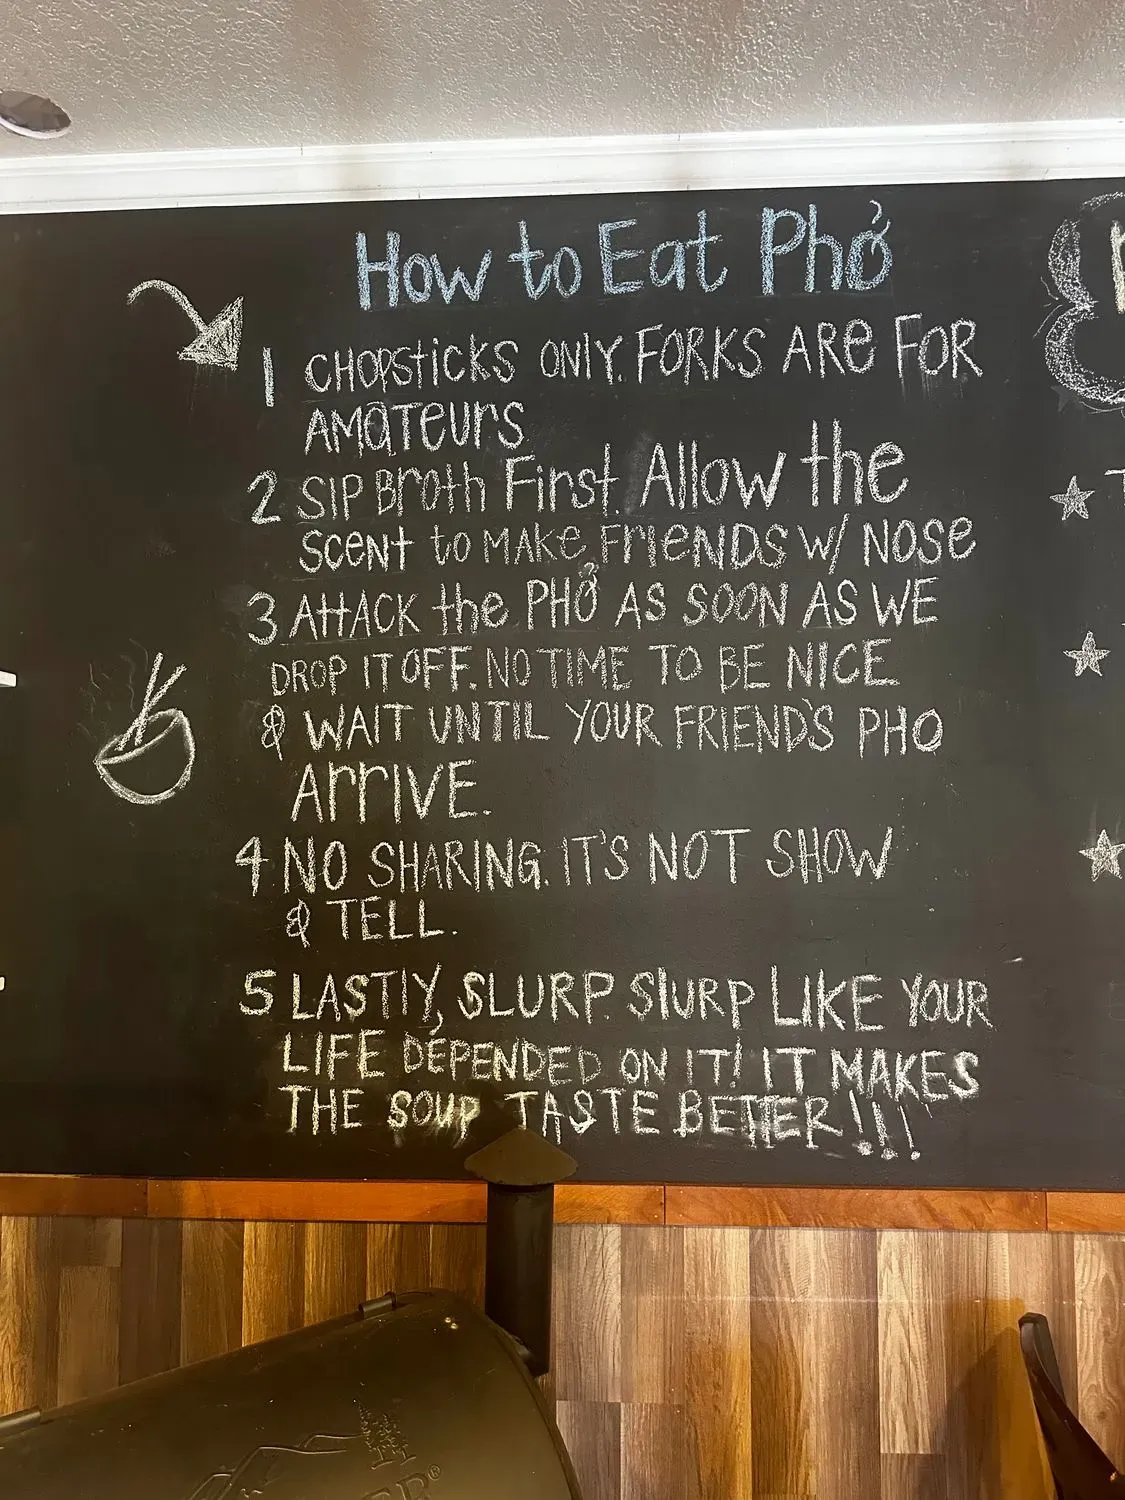 How to Eat Phở
1 CHOPSticks ONLY. FORKS ARE FOR
AMATEURS
2 SIP Broth First. Allow the
SCENT to MAKE FRIENDS W/ NOSE
3 ATTACK the PHỞ AS SOON AS WE
DROP IT OFF. NO TIME TO BE NICE
& WAIT UNTIL YOUR FRIEND'S PHO
ARRIVE.
4 NO SHARING. IT'S NOT SHOW
& TELL.
5 LASTLY, SLURP. SLURP LIKE YOUR
LIFE DEPENDED ON IT! IT MAKES
THE SOUP TASTE BETTER!!!